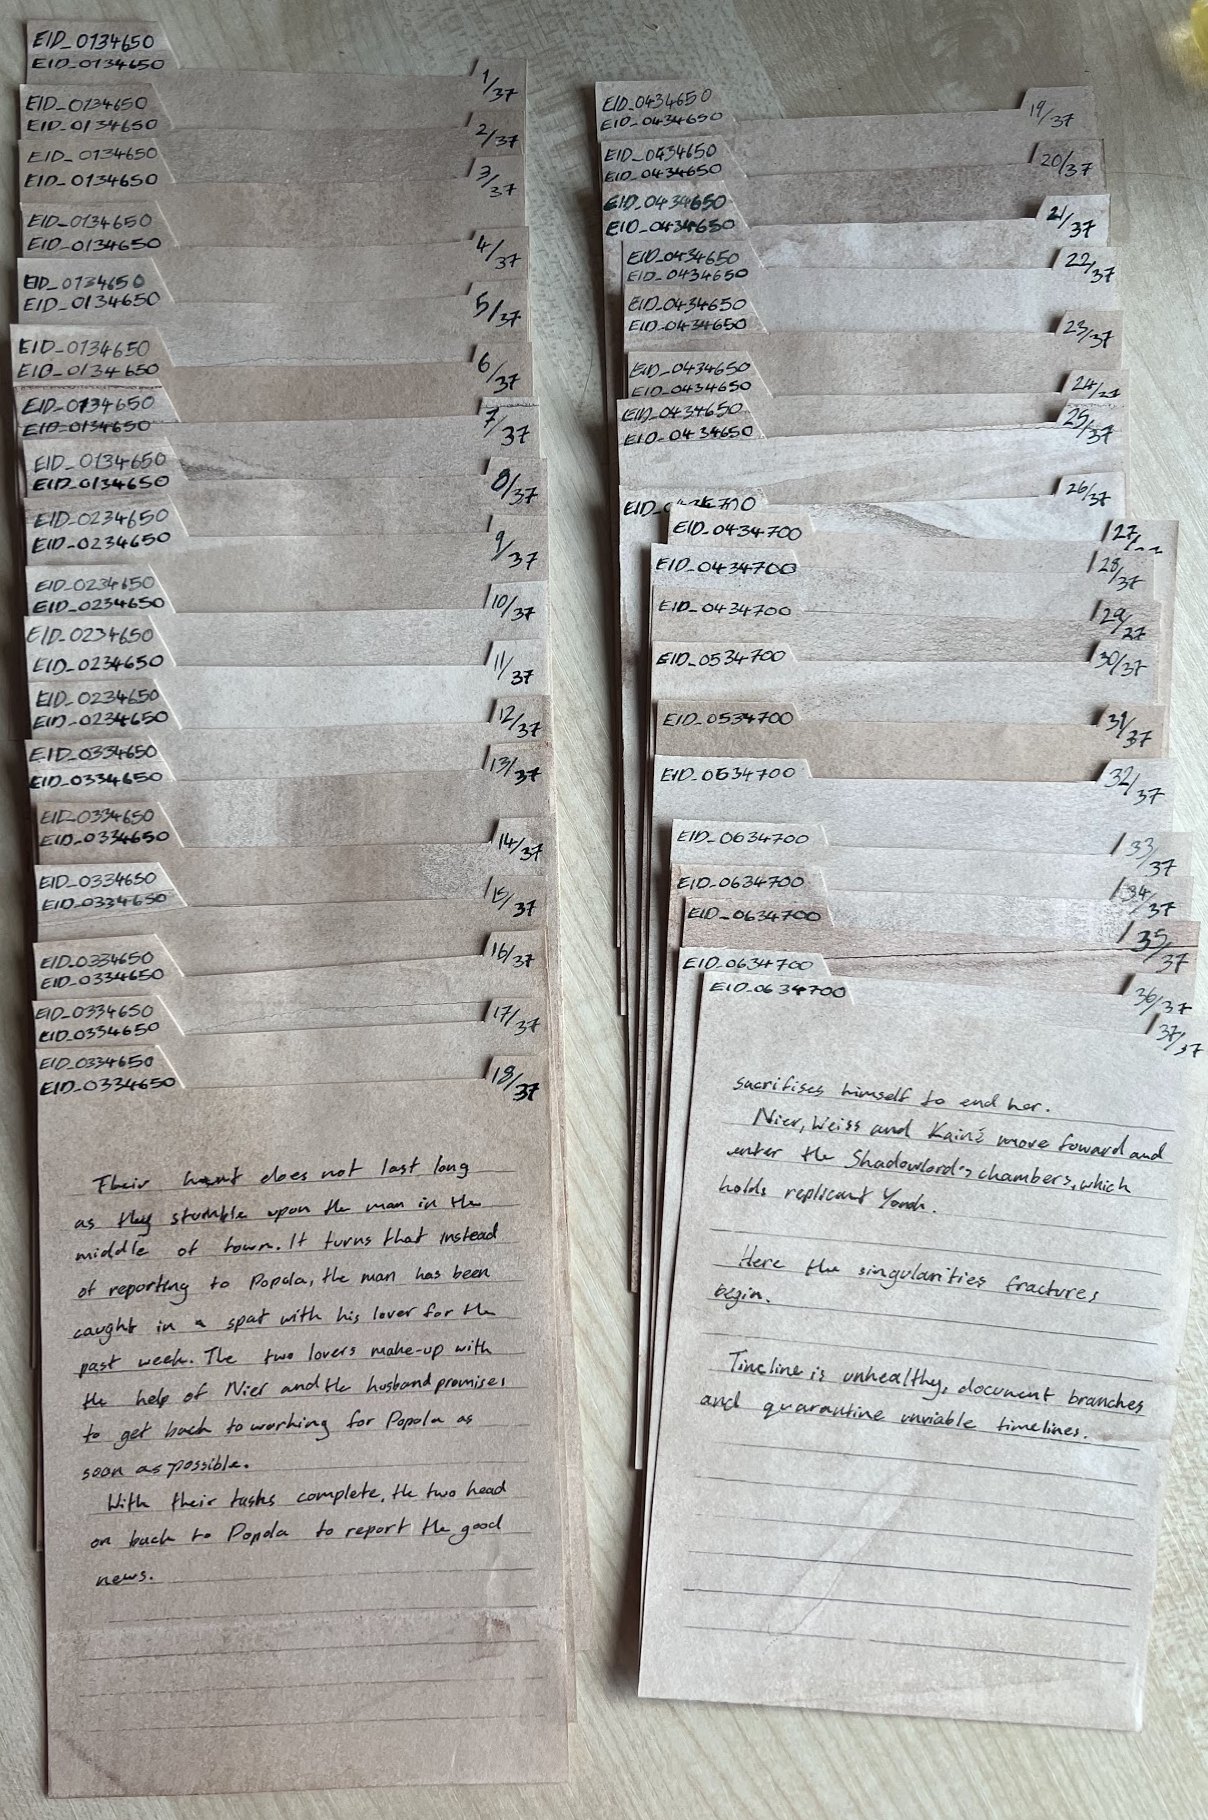 EID_0134650
EID_0134650
1/37
EID_0134650
EID_0134650
2/37
EID_0134650
EID_0134650
3/37
EID_0134650
EID_0134650
4/37
EID_0134650
EID_0134650
5/37
EID_0134650
EID_0134650
6/37
EID_0134650
EID_0134650
7/37
EID_0134650
EID_0134650
8/37
EID_0234650
EID_0234650
9/37
EID_0234650
EID_0234650
10/37
EID_0234650
EID_0234650
11/37
EID_0234650
EID_0234650
12/37
EID_0334650
EID_0334650
13/37
EID_0334650
EID_0334650
14/37
EID_0334650
EID_0334650
15/37
EID_0334650
EID_0334650
16/37
EID_0334650
EID_0334650
17/37
EID_0334650
EID_0334650
18/37
Their hunt does not last long
as they stumble upon the man in the
middle of town. It turns that instead
of reporting to Popola, the man has been
caught in a spat with his lover for the
past week. The two lovers make-up with
the help of Nier and the husband promises
to get back to working for Popola as
soon as possible.
With their tasks complete, the two head
on back to Popola to report the good
news.
EID_0434650
EID_0434650
19/37
EID_0434650
EID_0434650
20/37
EID_0434650
EID_0434650
21/37
EID_0434650
EID_0434650
22/37
EID_0434650
EID_0434650
23/37
EID_0434650
EID_0434650
24/
EID_0434650
EID_0434650
25/37
26/37
EID_0434700
27/
EID_0434700
28/37
EID_0434700
29/37
EID_0534700
30/37
EID_0534700
31/37
EID_0534700
32/37
EID_0634700
33/37
EID_0634700
34/37
EID_0634700
35/37
EID_0634700
36/37
EID_0634700
37/37
sacrifises himself to end her.
Nier, Weiss and Kainé move foward and
enter the Shadowlord's chambers, which
holds replicant Yonah.
Here the singularities fractures
begin.
Timeline is unhealthy, document branches
and quarantine unviable timelines.